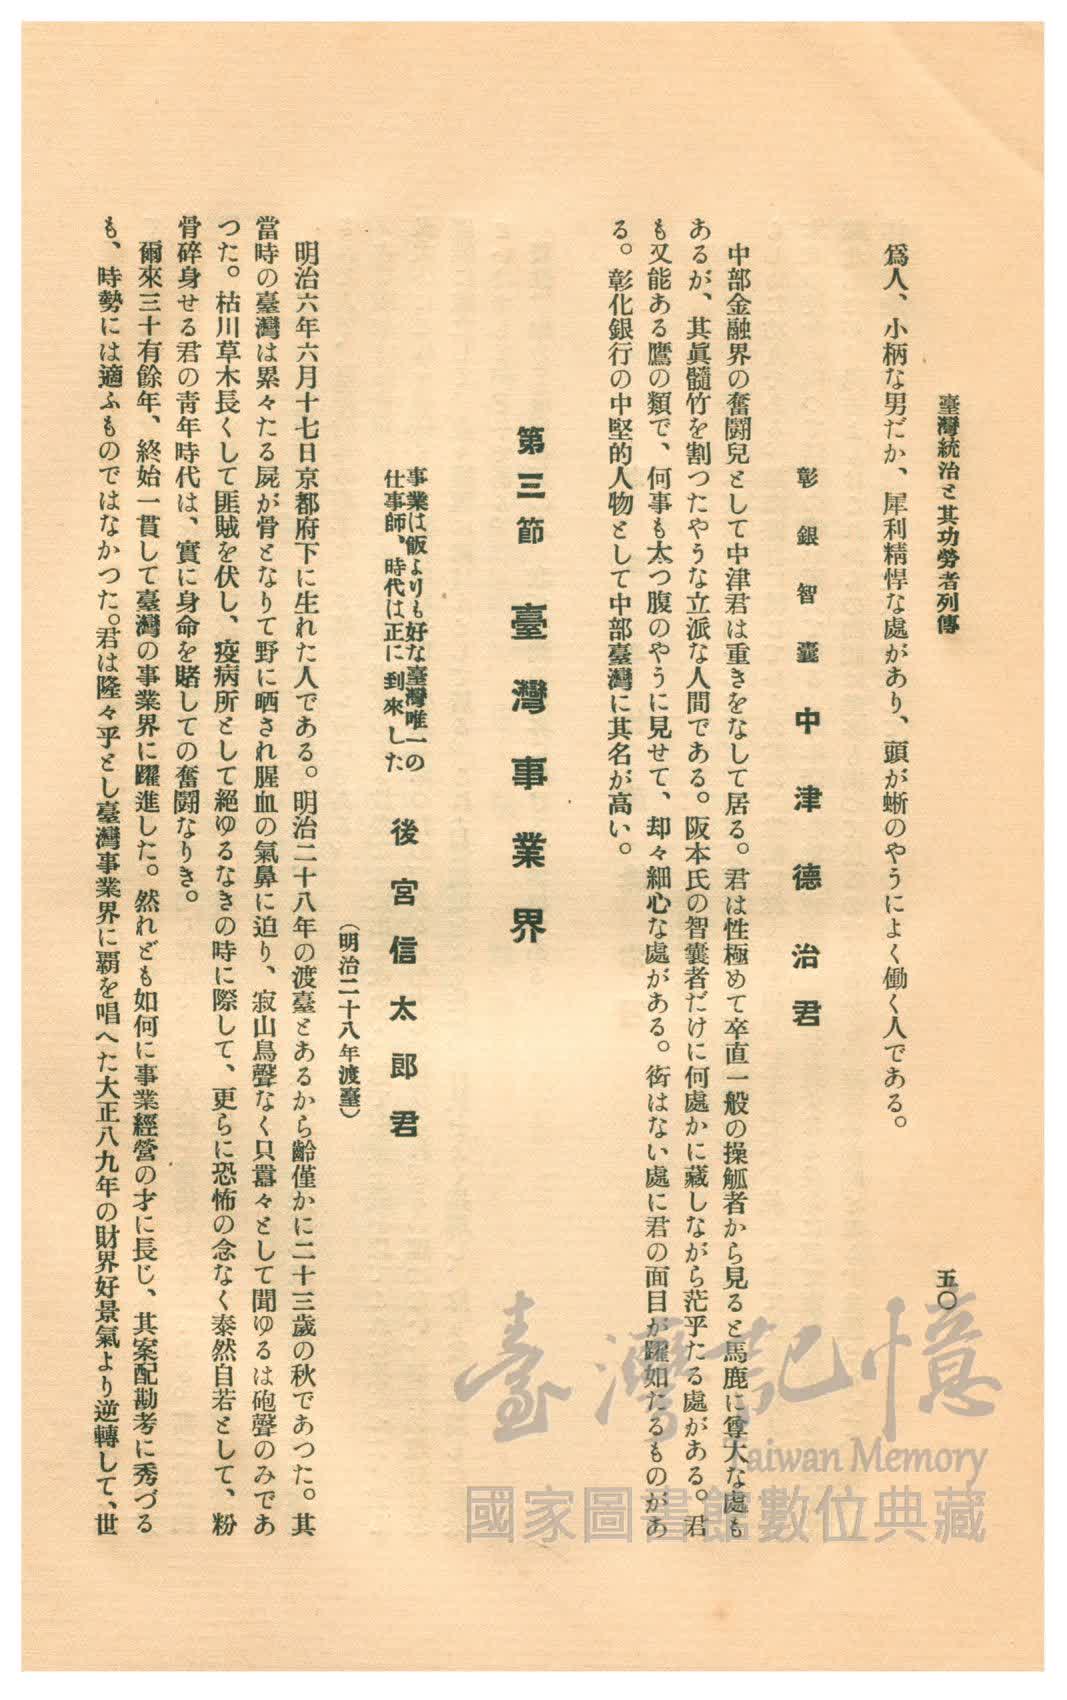 臺灣統治と其功勞者列傳
五〇
爲人、小柄な男だか、犀利精悍な處があり、頭が蜥のやうによく働く人である。
彰銀智囊 中津德治君
中部金融界の奮闘兒として中津君は重きをなして居る。君は性極めて卒直一般の操觚者から見ると馬鹿に尊大な處も
あるが、其眞髓竹を割つたやうな立派な人間である。阪本氏の智囊者だけに何處かに藏しながら茫乎たる處がある。君
も又能ある鷹の類で、何事も太つ腹のやうに見せて、却々細心な處がある。衒はない處に君の面目が躍如たるものがあ
る。彰化銀行の中堅的人物として中部臺灣に其名が高い。
第三節 臺灣事業界
事業は飯よりも好な臺灣唯一の
仕事師、時代は正に到來した
後宮信太郎君
（明治二十八年渡臺）
明治六年六月十七日京都府下に生れた人である。明治二十八年の渡臺とあるから齡僅かに二十三歲の秋であつた。其
當時の臺灣は累々たる屍が骨となりて野に晒され腥血の氣鼻に迫り、寂山鳥聲なく只囂々として聞ゆるは砲聲のみであ
つた。枯川草木長くして匪賊を伏し、疫病所として絕ゆるなきの時に際して、更らに恐怖の念なく泰然自若として、粉
骨碎身せる君の靑年時代は、實に身命を賭しての奮鬪なりき。
爾來三十有餘年、終始一貫して臺灣の事業界に躍進した。然れども如何に事業經營の才に長じ、其案配勘考に秀づる
も、時勢には適ふものではなかつた。君は隆々乎とし臺灣事業界に覇を唱へた大正八九年の財界好景氣より逆轉して、世
臺灣記憶
Taiwan Memory
國家圖書館數位典藏